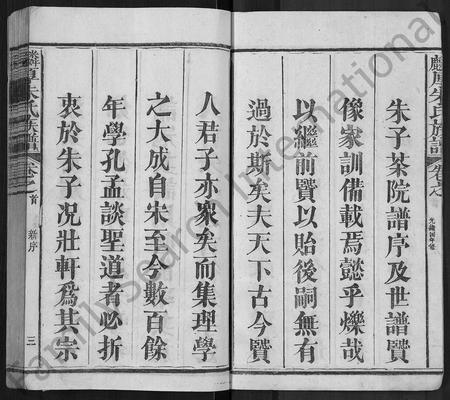 朱子茶院譜序及世譜賢
像家訓備載焉懿乎爍哉
以繼前賢以貽後嗣無有
過於斯矣夫天下古今賢
人君子亦衆矣而集理學
之大成自宋至今數百餘
年學孔孟談聖道者必折
衷於朱子况壯軒爲其宗
朱氏族譜
卷之首
新序
三
FamilySearch International